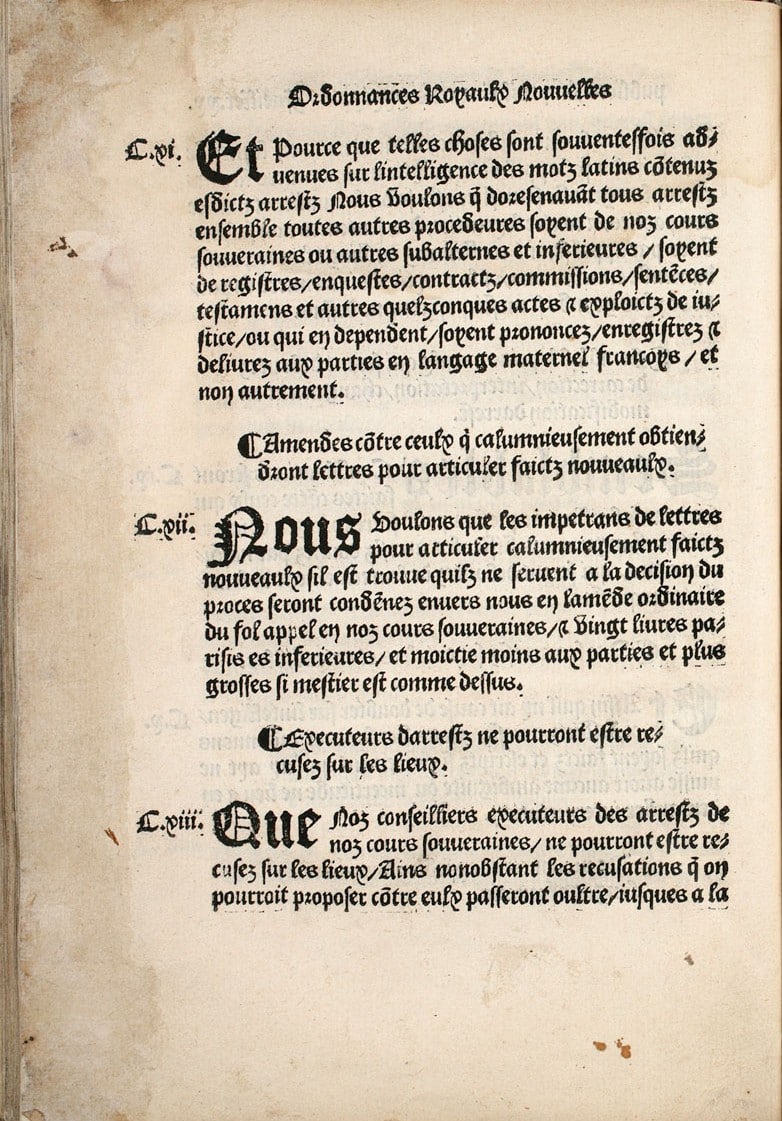 Ordonnances Royaulx Nouuelles
C.xi. Et Pource que telles choses sont souuentesfois ad⸗
uenues sur lintelligence des motz latins cōtenuz
esdictz arrestz Nous Voulons q̄ doresenauāt tous arrestz
ensemble toutes autres procedeures soyent de noz cours
souueraines ou autres subalternes et inferieures / soyent
de registres/enquestes/contractz/commissions/sentēces/
testamens et autres quelzconques actes & exploictz de iu⸗
stice/ou qui en dependent/soyent prononcez/enregistrez &
deliurez aux parties en langage maternel francoys / et
non autrement.
¶Amendes cōtre ceulx q̄ calumnieusement obtien⸗
dront lettres pour articuler faictz nouueaulx.
C.xii. Nous Voulons que les impetrans de lettres
pour articuler calumnieusement faictz
nouueaulx sil est trouue quilz ne seruent a la decision du
proces seront condēnez enuers nous en lamēde ordinaire
du fol appel en noz cours souueraines/& Vingt liures pa⸗
risis es inferieures/ et moictie moins aux parties et plus
grosses si mestier est comme dessus.
¶Executeurs darrestz ne pourront estre re⸗
cusez sur les lieux.
C.xiii. Que Noz conseilliers executeurs des arrestz de
noz cours souueraines/ ne pourront estre re⸗
cusez sur les lieux/Ains nonobstant les recusations q̄ on
pourroit proposer cōtre eulx passeront oultre/iusques a la